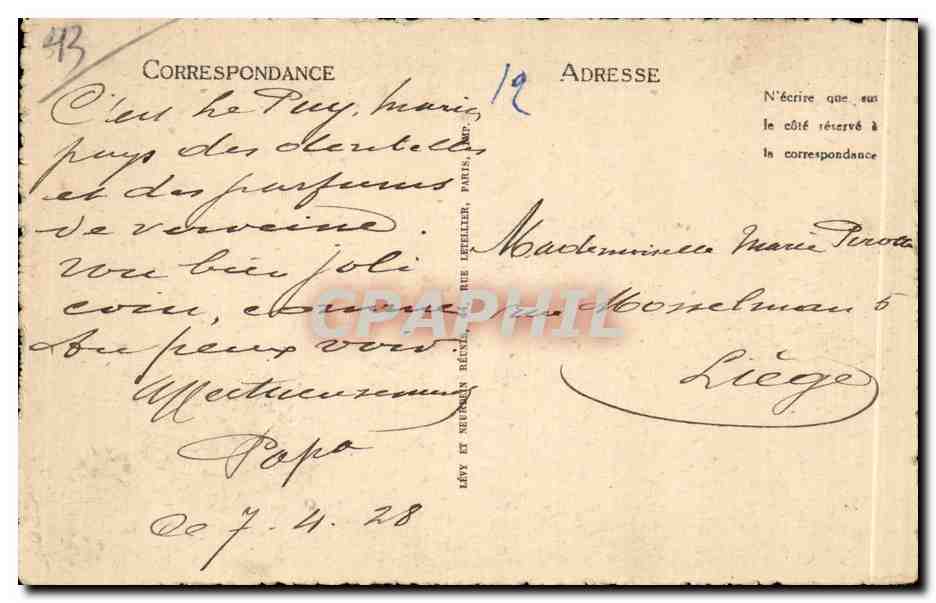 43
CORRESPONDANCE
C'est Le Puy, Marie,
pays des dentelles
et des parfums
de verveine.
Un bien joli
coin, comme
tu peux voir.
Affectueusement
Papa
le 7.4.28
LÉVY ET NEURDEIN RÉUNIS, 44, RUE LETELLIER, PARIS, IMP.
12
ADRESSE
N'écrire que sur
le côté réservé à
la correspondance
Mademoiselle Marie
rue Mosselman 5
Liège
CPAPHIL